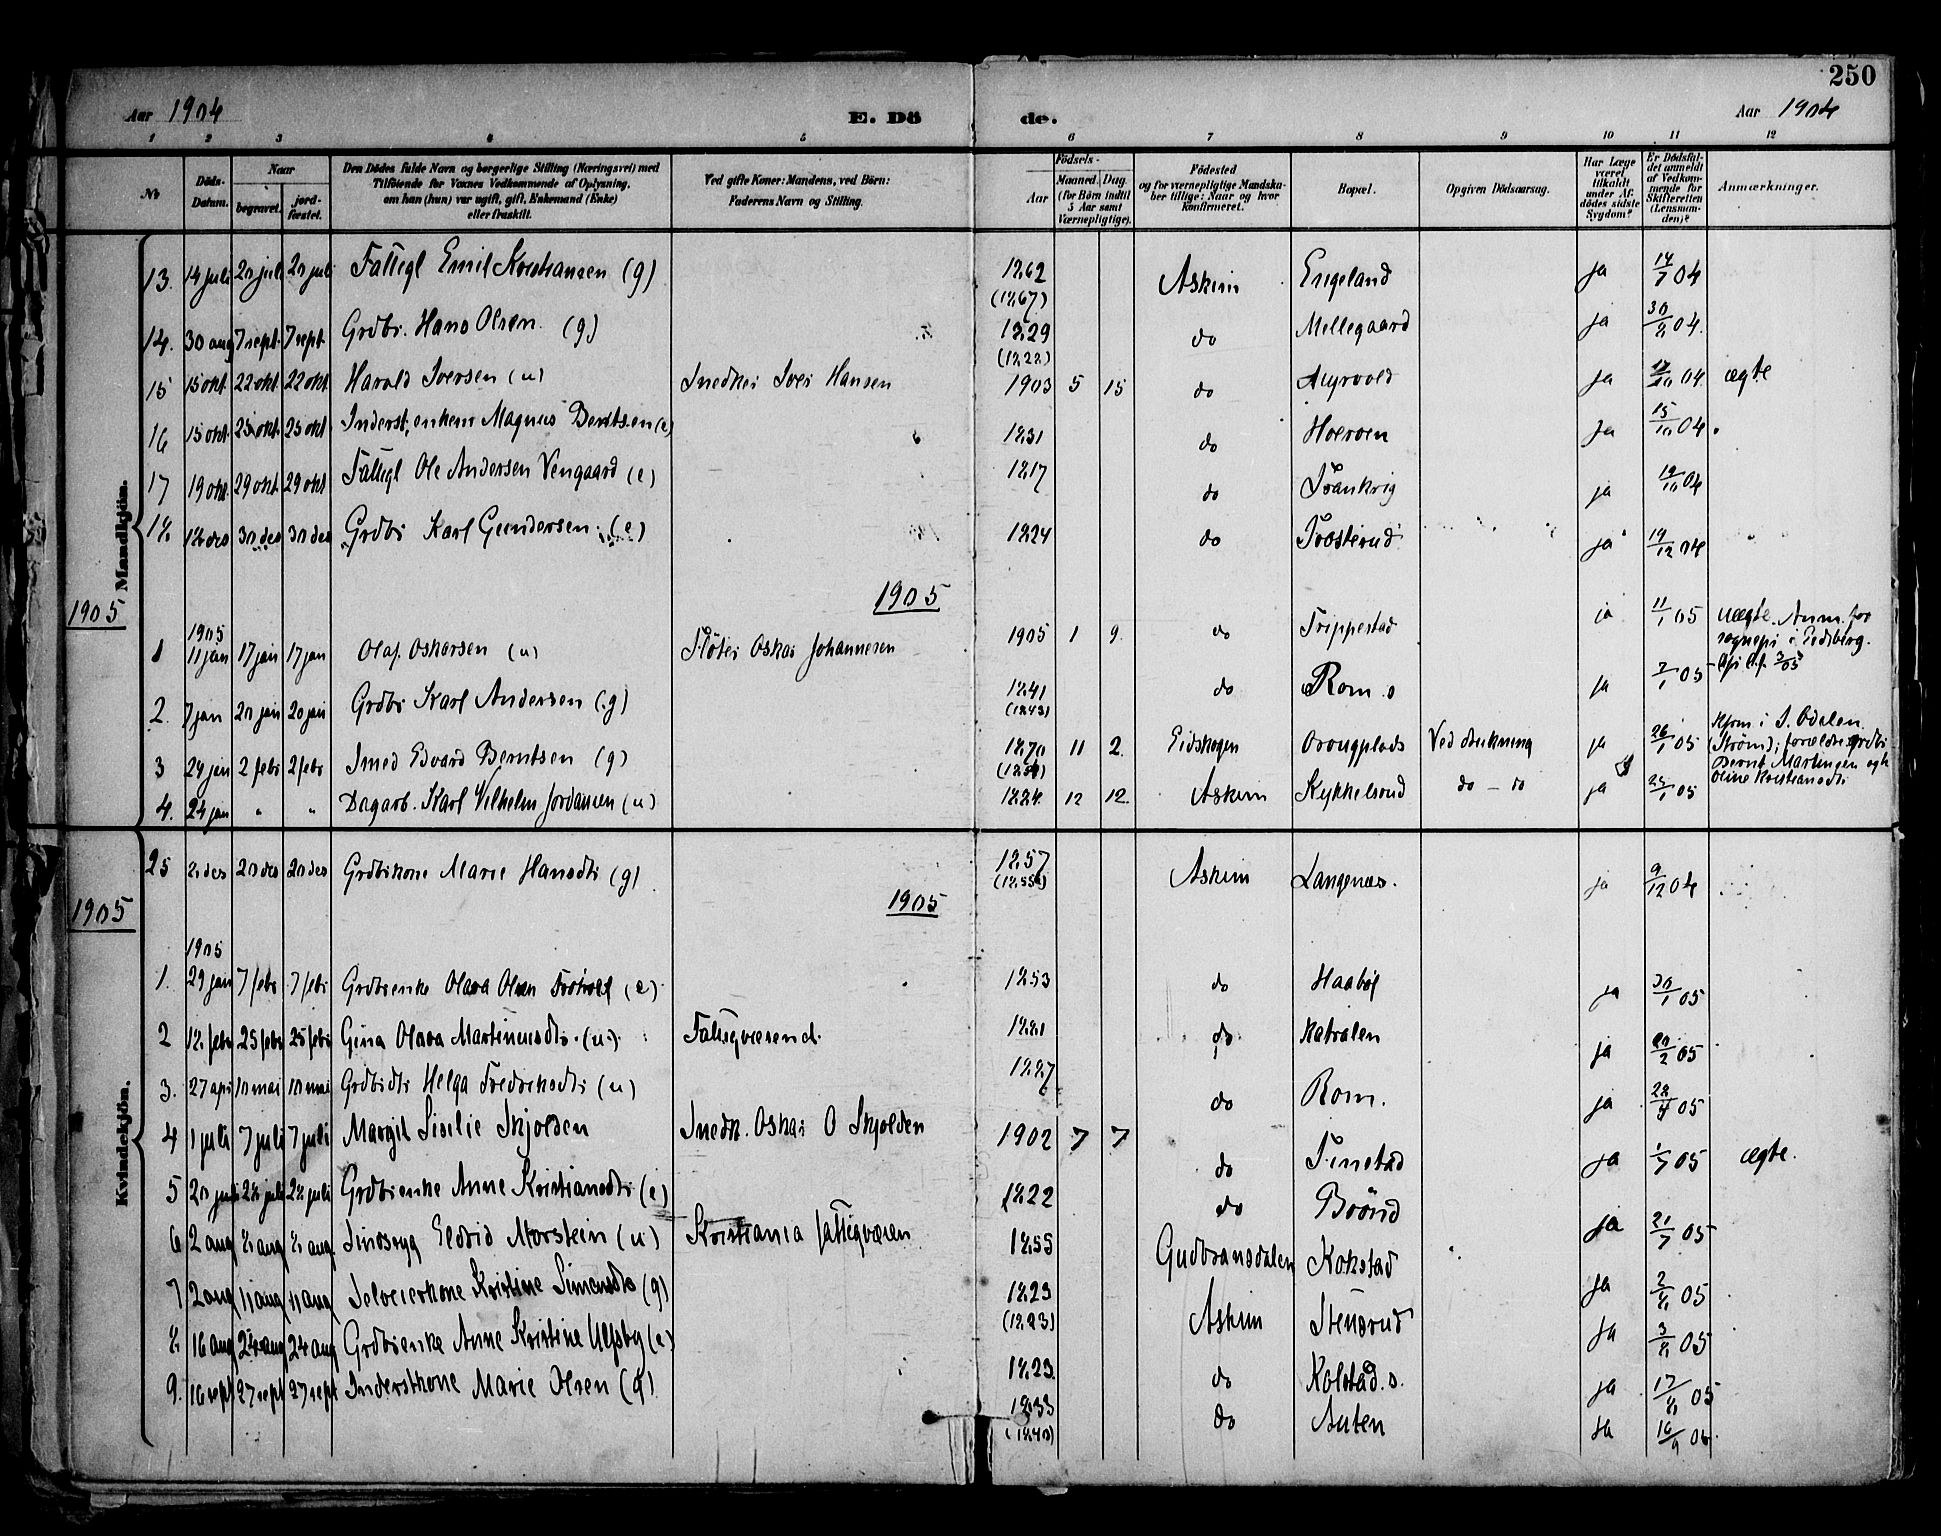 250
Aar 1904 E. Dö de. Aar 1904
1 2 3 4 5 6 7 8 9 10 11 12
No
Döds-Datum.
Naar
begravet.
jord-fæstet.
Den Dödes fulde Navn og borgerlige Stilling (Næringsvei) med
Tilföiende for Voxnes Vedkommende af Oplysning,
om han (hun) var ugift, gift, Enkemand (Enke)
eller fraskilt.
Ved gifte Koner: Mandens, ved Börn:
Faderens Navn og Stilling.
Födsels-
Aar
Maaned. Dag.
(for Börn indtil
5 Aar samt
Værnepligtige).
Födested
og for værnepligtige Mandska-
ber tillige: Naar og hvor
konfirmeret.
Bopæl.
Opgiven Dödsaarsag.
Har Læge
været
tilkaldt
under Af-
dödes sidste
Sygdom?
Er Dödsfal-
det anmeldt
af Vedkom-
mende for
Skifteretten
(Lensman-
den)?
Anmærkninger.
Mandkjön.
13. 14 juli 20 juli 20 juli Fattigl Emil Kristiansen (g) 1862 (1867) Askim Engeland ja 14/7 04
14. 30 aug 7 sept. 7 sept. Grdbr. Hans Olsen (g) 1829 (1828) do Mellegaard ja 30/8 04.
15 15 okt. 22 okt. 22 okt. Harald Iversen (u) Snedker Iver Hansen 1903 5 15 do Myrvold ja 04. ægte
16 15 okt. 25 okt. 25 okt Inderst, enkem Magnus Berntsen (e) 1831 do Hoeroen ja 15/10 04
17 19 okt. 29 okt. 29 okt Fattigl Ole Andersen Vengaard (e) 1817 do Frankrig ja 19/10 04
18 18 des 30 des 30 des Grdbr Karl Gundersen (e) 1824 do Trosterud ja 19/12 04
1905 1905
1905
1 11 jan 17 jan 17 jan Olaf Oskarsen (u) Fløter Oskar Johannesen 1905 1 9. do Trippestad ja 11/1 05 uægte. Anm. for
sognepr i Eidsberg.
2. 7 jan 20 jan 20 jan Grdbr Karl Andersen (g) 1841 (1843) do Rom. ja 7/1 05
3 24 jan 2 febr 2 febr Smed Edvard Berntsen (g) 1870 11 2. Eidskogen Ovongplads Ved drukning ja 26/1 05 i S. Odalen
(Strøm); forældre grdbr
Bernt Martinsen og h
Oline Kristiansdtr
4. 24 jan " " Dagarb. Karl Vilhelm Jordansen (u) 1884. 12 12. Askim Kykkelsrud do - do ja 25/1 05
Kvindekjön.
25 2. des 20 des 20 des Grdbrkone Marie Hansdtr (g) 1857 Askim Langenæs. ja 9/12 04
1905 1905
1905
1. 29 jan 7 febr 7 febr Grdbrenke Olava Olsen (e) 1853 do Haabøl ja 30/1 05
2 18. febr 25 febr 25 febr Gina Olava Martinusdtr. (u) Fattigvæsend. 1881 do Katralen ja 20/2 05
3. 27 apr 10 mai 10 mai Grdbrdtr Helga Fredriksdtr (u) 1887 do Rom. ja 28/4 05
4 1 juli 7 juli 7 juli Margit Sisilie Skjolden Snedk. Oskar O Skjolden 1902 7 7 do Finstad ja 1/7 05 ægte.
5 20 juli 28 juli 28 juli Grdbrenke Anne Kristiansdtr (e) 1822 do Brönd ja 21/7 05
6 2 aug 8 aug 8 aug. Sindssyg Eldrid Morstein (u) Kristiania fattigvæsen 1855 Gudbransdalen Kokstad ja 2/8 05
7 2 aug 11 aug 11 aug Selveierkone Kristine Simensdtr (g) 1823 (1823) Askim Stensrud ja 3/8 05
8. 16 aug 24 aug 24 aug Grdbrenke Anne Kristine Ulfsby (e) 1823. do Kolstad. s. ja 17/8 05
9. 16 sept 27 sept 27 sept Inderstkone Marie Olsen (g) 1833 (1840) do Auten ja 16/9 05.